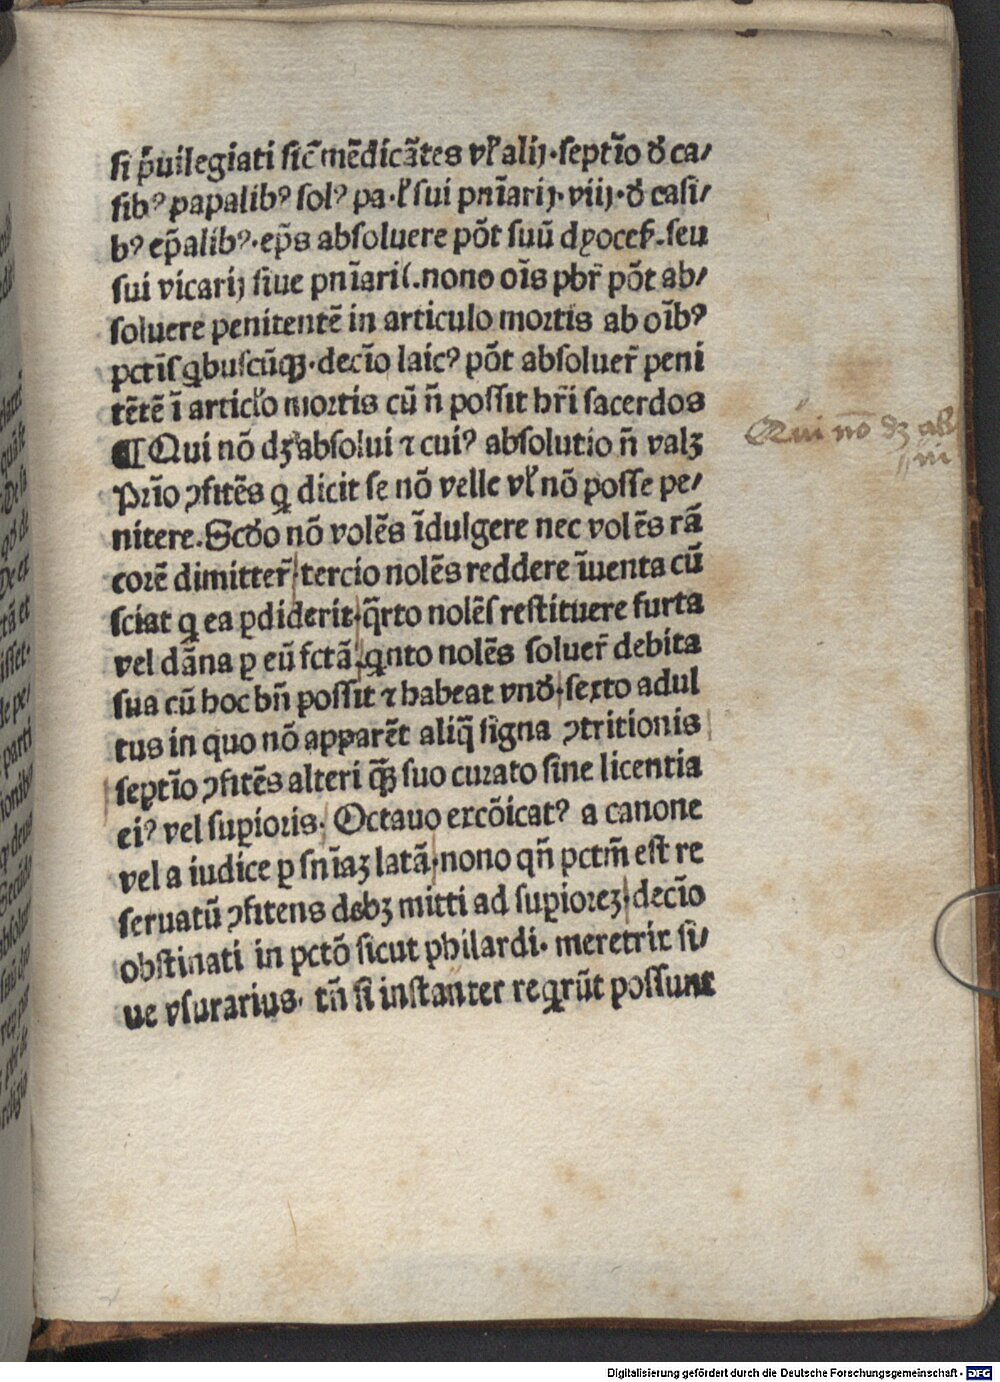 si p̄uilegiati sic̄ mēdicātes vł alij·septīo ꝺ̄ ca/
sibꝰ papalibꝰ solꝰ pa·ł sui pnīarij·viij·ꝺ̄ casi/
bꝰ ep̄alibꝰ·ep̄s absoluere pōt suū dyoces̄·seu
sui vicarij siue pnīarij.nono oīs pbr̄ pōt ab/
soluere penitentē in articulo moꝛtis ab oībꝰ
pctīs qͥbuscūqꝫ·decīo laicꝰ pōt absoluer̄ peni
tētē ī articło moꝛtis cū n̄ possit hr̄i sacerdos
¶ Qui nō dꝫ absolui ⁊ cuiꝰ absolutio n̄ valꝫ
Pꝛīo ꝯfitēs ꝙ dicit se nō velle vł nō posse pe/
nitere.Scd̄o nō volēs īdulgere nec volēs rā
coꝛē dimitter̄·tercio nolēs reddere īuenta cū
sciat ꝙ ea ꝑdiderit·q̄rto nolēs restituere furta
vel dāna ꝑ eū fctā·qͥnto nolēs soluer̄ debita
sua cū hoc bn̄ possit ⁊ habeat vnd̄·sexto adul
tus in quo nō apparēt aliq̄ signa ꝯtritionis
septīo ꝯfitēs alteri qͣꝫ suo curato sine licentia
eiꝰ vel suꝑioꝛis· Octauo excōicatꝰ a canone
vel a iudice ꝑ snīaꝫ latā·nono qn̄ pctm̄ est re
seruatū ꝯfitens debꝫ mitti ad suꝑioꝛeꝫ·decīo
obstinati in pctō sicut philardi· meretrix si/
ue vsurarius· tn̄ si instanter reqͥrūt possunt
Qui nō dꝫ abs
Digitalisierung gefördert durch die Deutsche Forschungsgemeinschaft - DFG